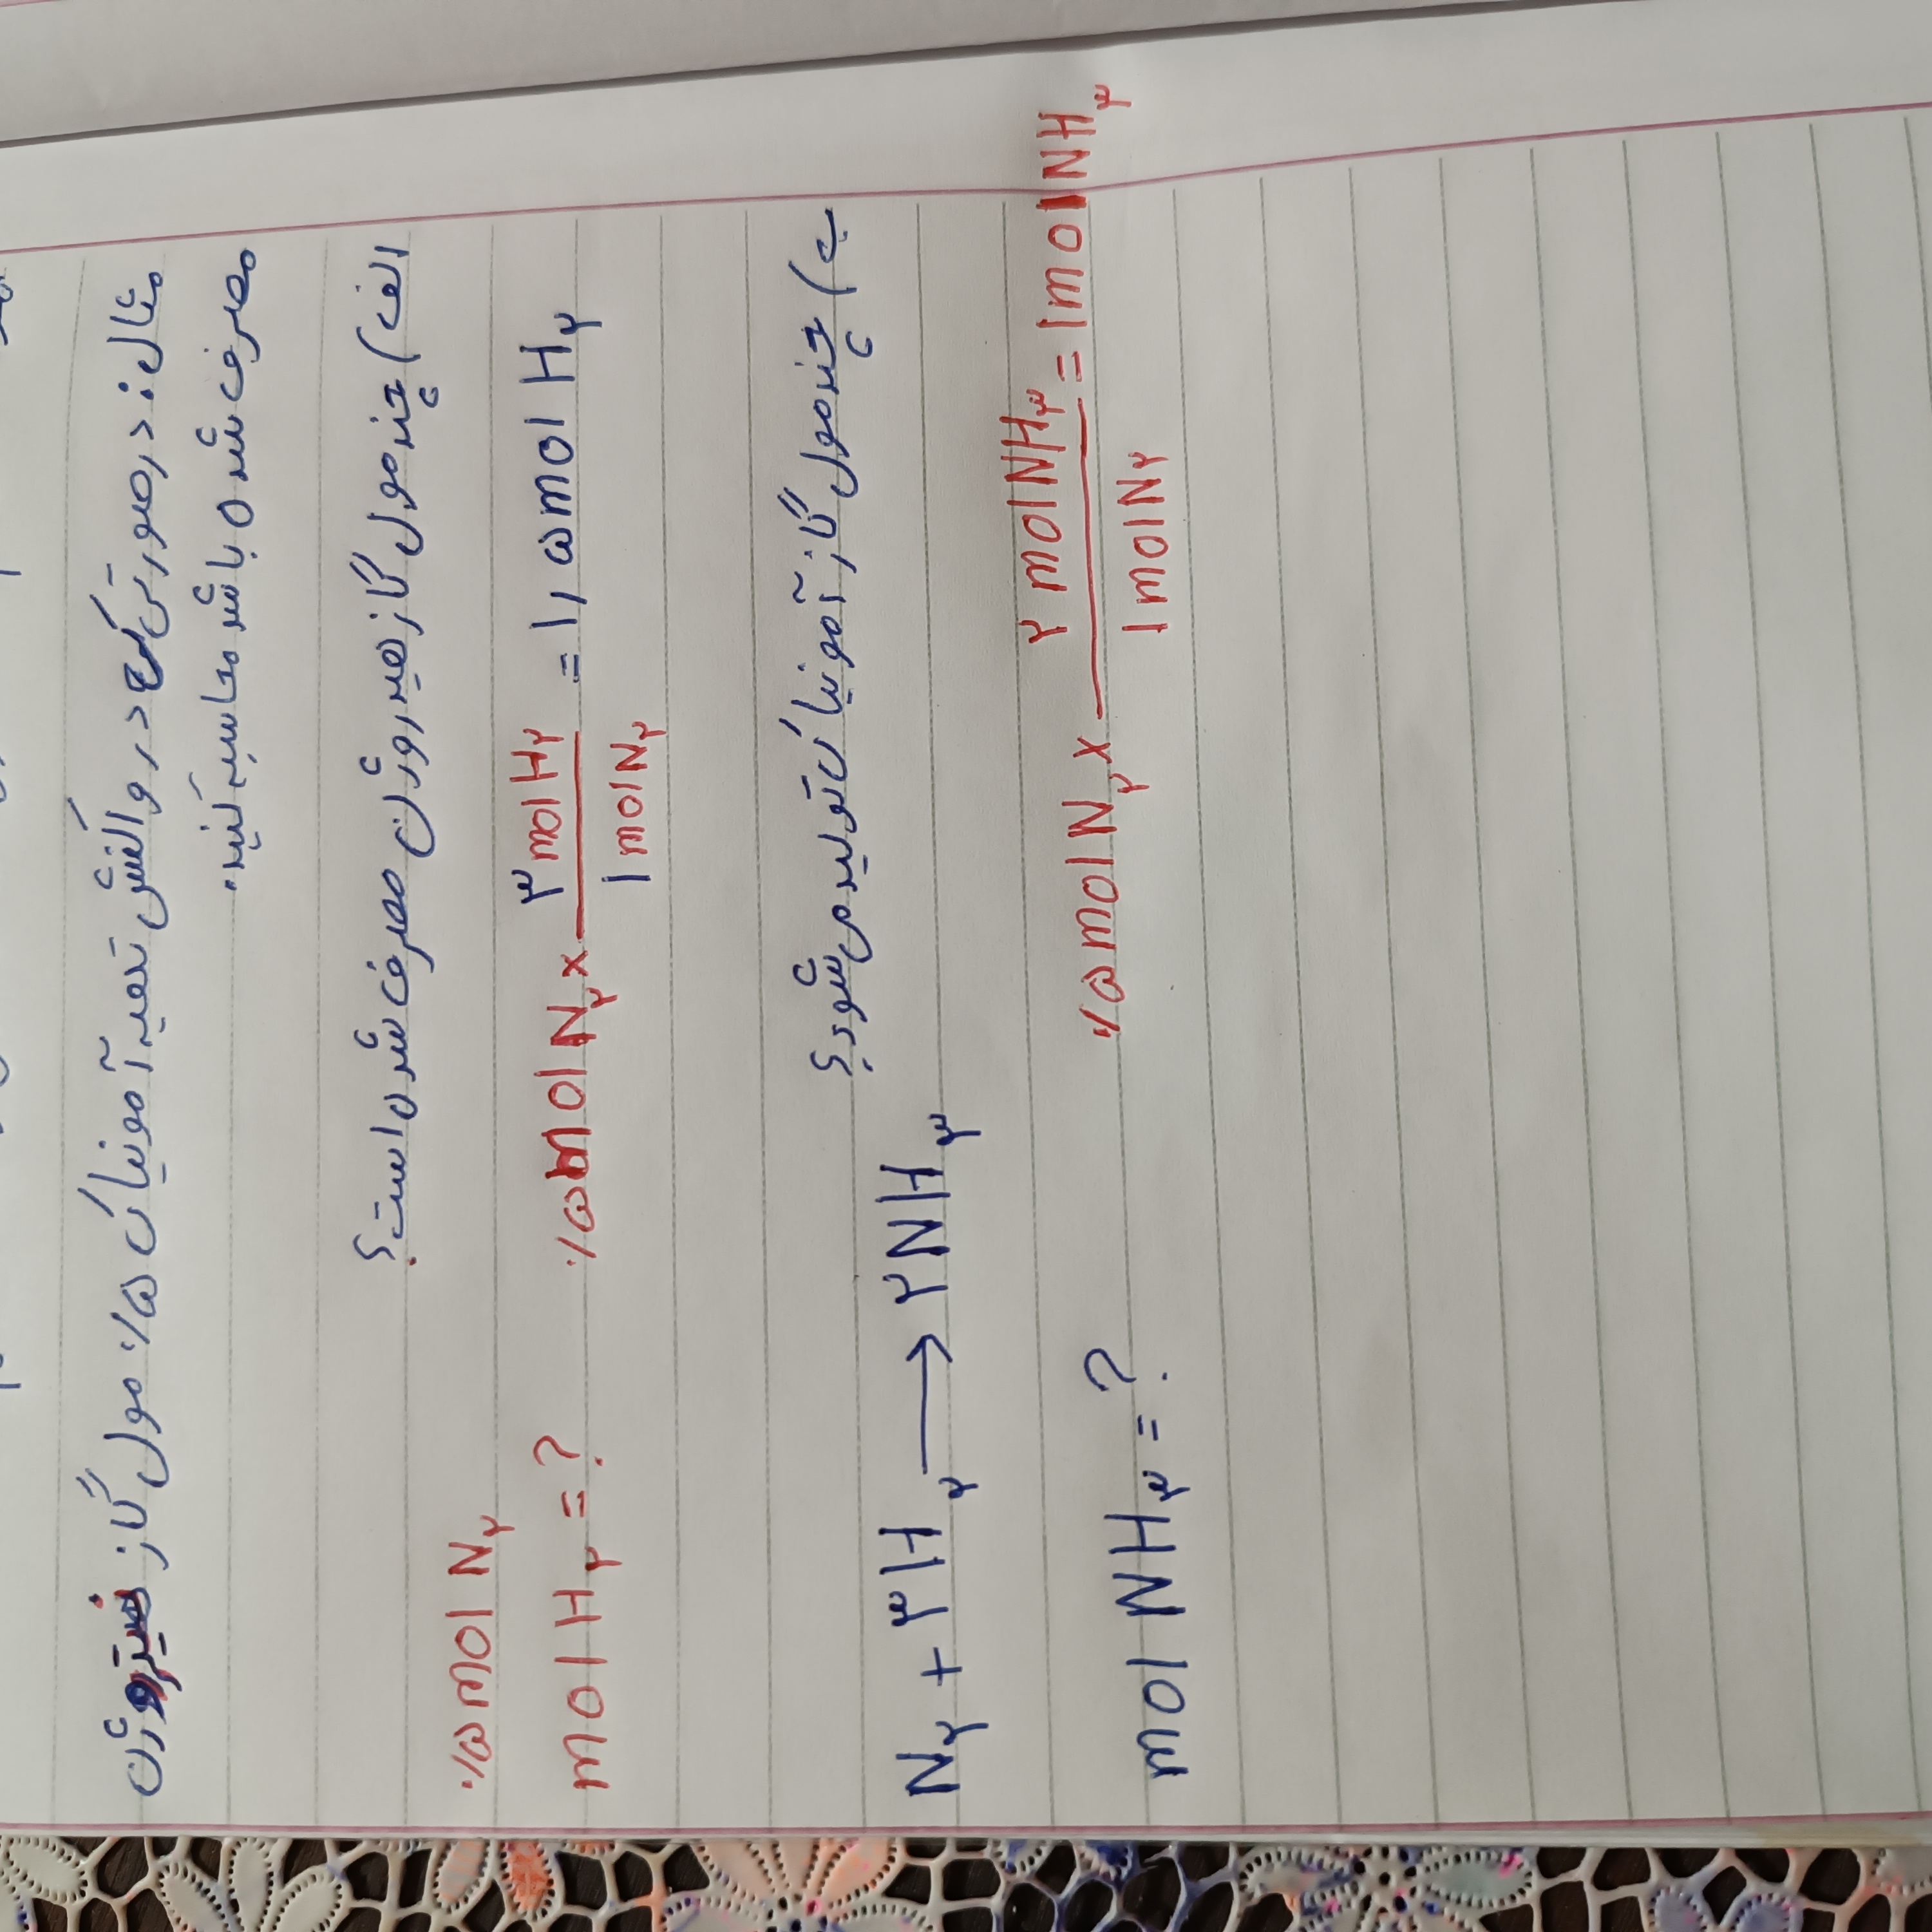 مثال: درصورتی که در واکنش تهیه آمونیاک ۰/۵ مول گاز نیتروژن
مصرف شده باشد محاسبه کنید.
الف) چند مول گاز هیدروژن مصرف شده است؟
۰/۵ mol N₂
mol H₂ = ? ۰/۵ mol N₂ × ۳ mol H₂ / ۱ mol N₂ = ۱,۵ mol H₂
ب) چند مول گاز آمونیاک تولید می‌شود؟
N₂ + ۳H₂ → ۲NH₃
mol NH₃ = ? ۰/۵ mol N₂ × ۲ mol NH₃ / ۱ mol N₂ = ۱ mol NH₃